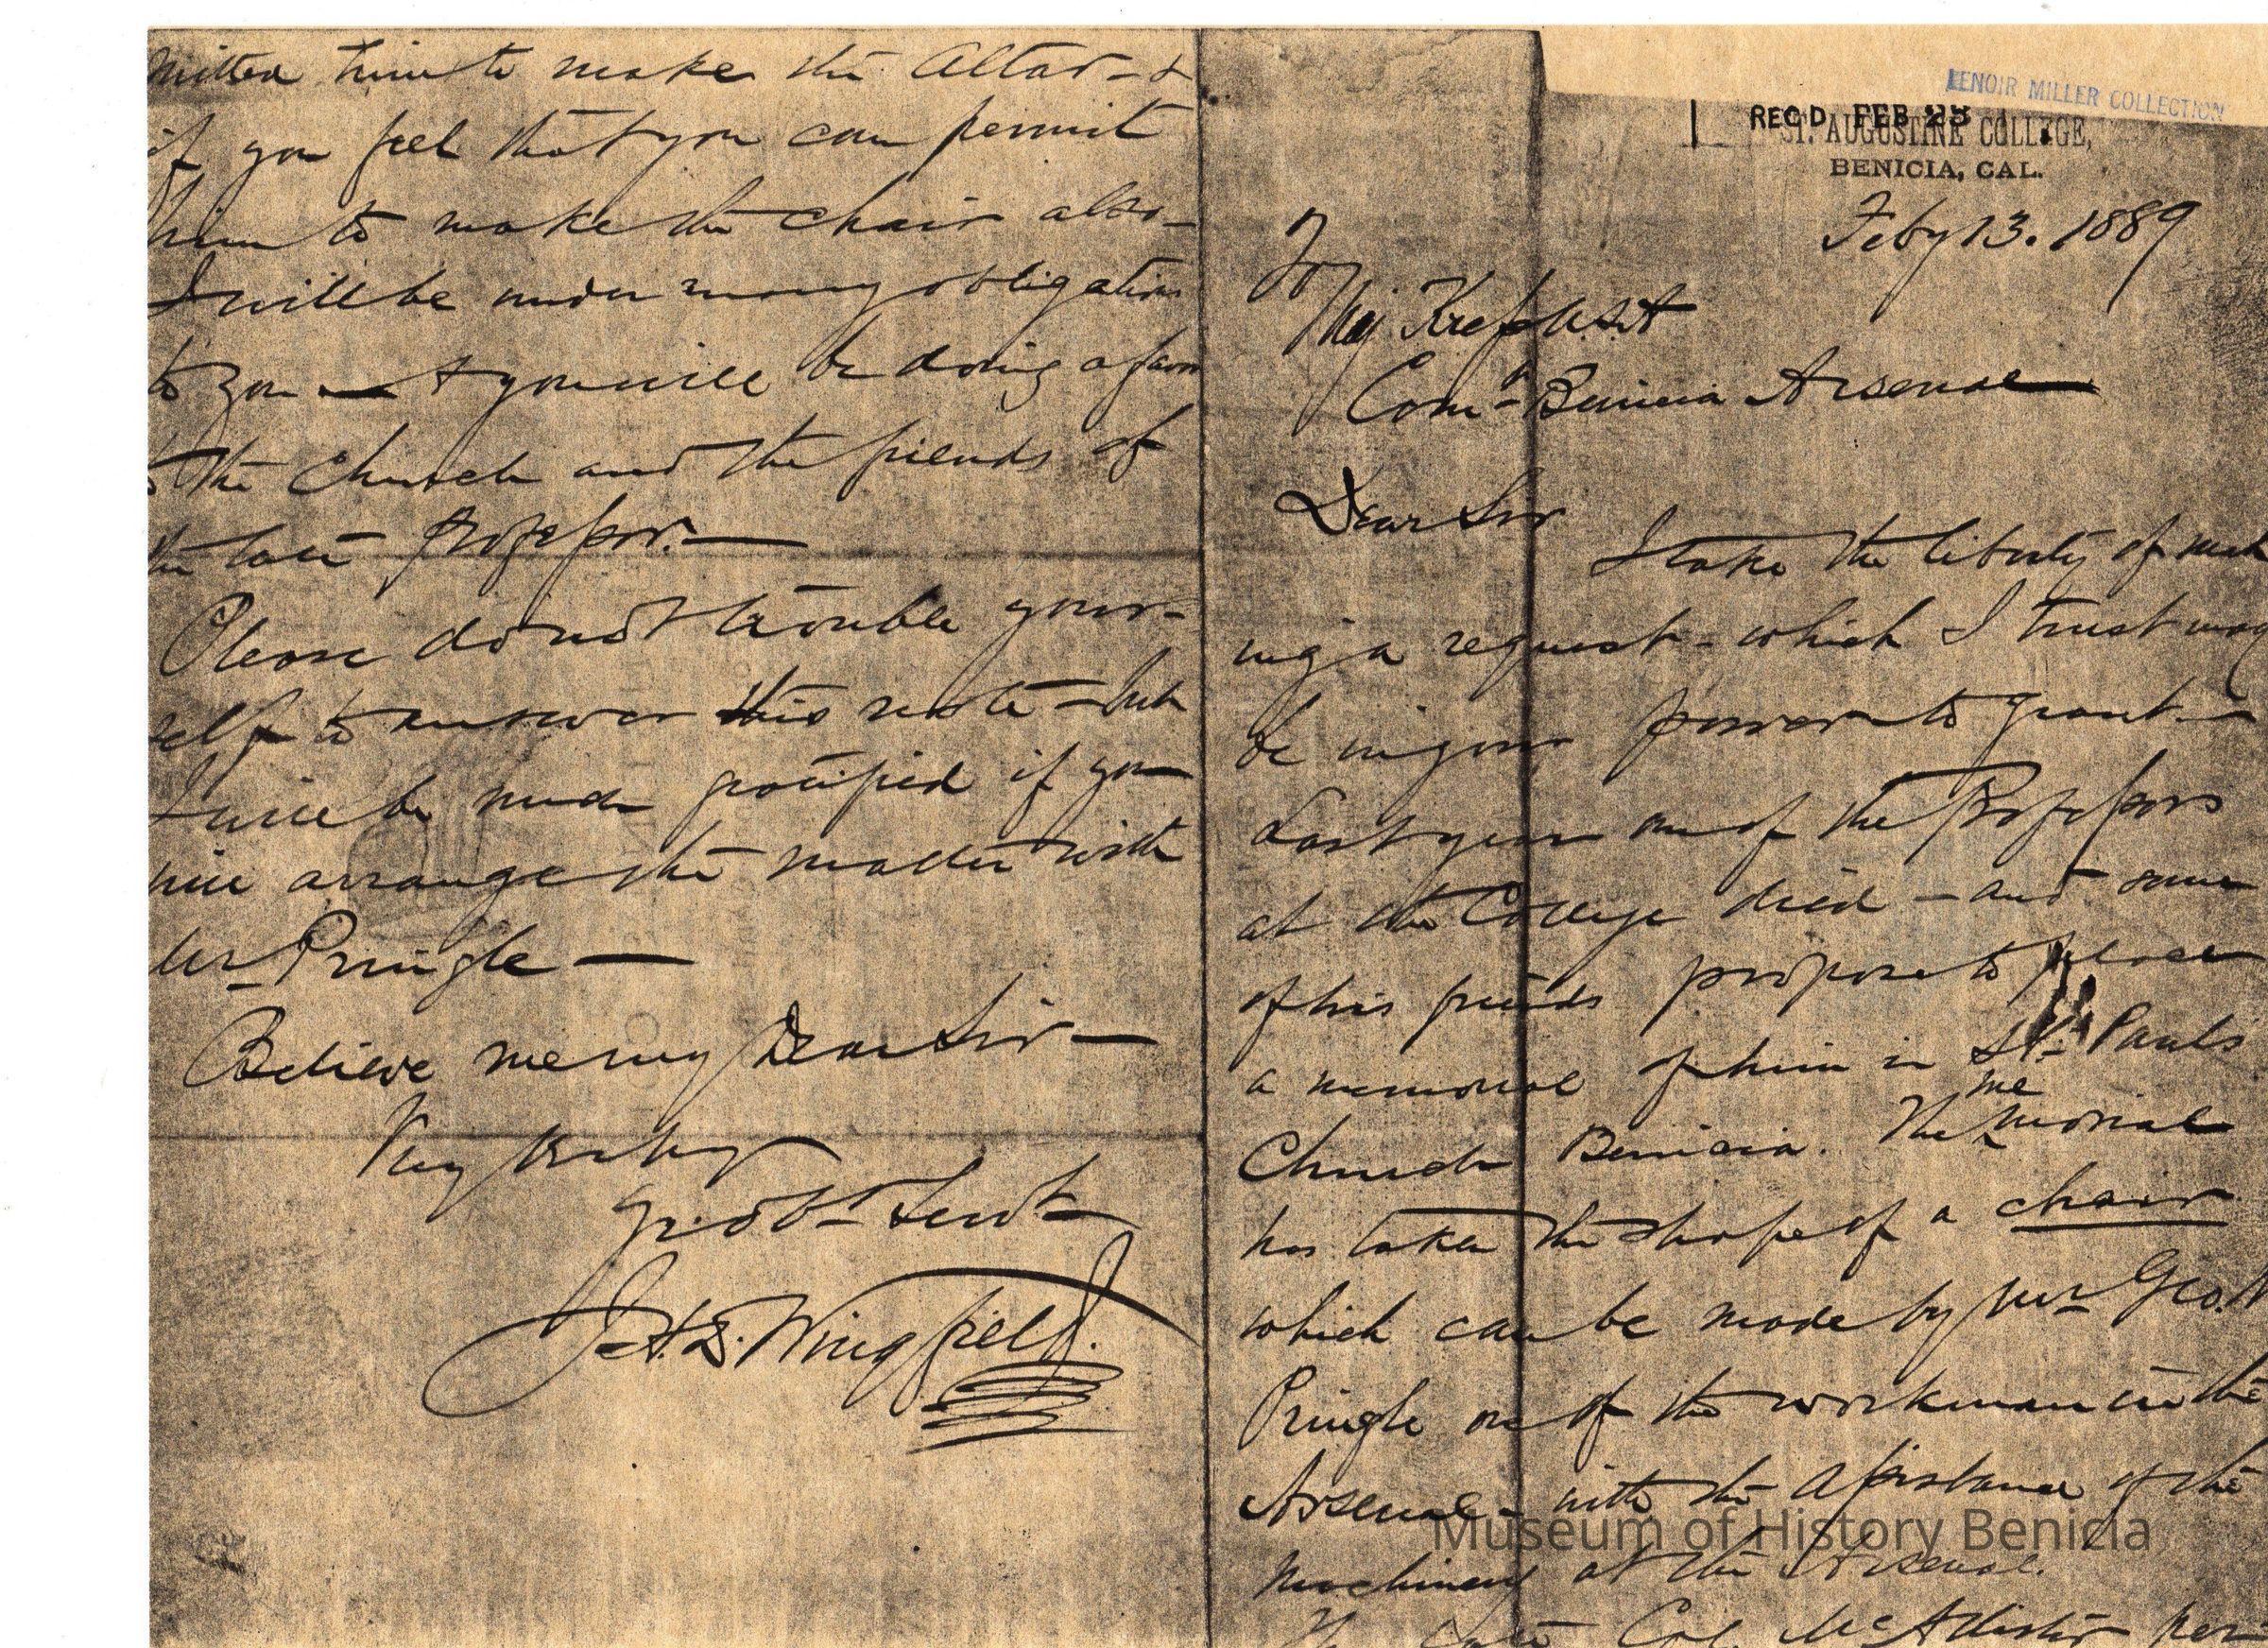 LENOIR MILLER COLLECTION
REC'D FEB 23
ST. AUGUSTINE COLLEGE,
BENICIA, CAL.
Feby 13. 1889
To
Maj
Com^d Benicia Arsenal
Dear Sir
I take the liberty of mak
ing a request - which I trust may
be in your power to grant -
Last year one of the Professors
at the College died - and some
of his friends propose to place
a memorial of him in St. Pauls
Church Benicia. The memorial
has taken the shape of a chair
which can be made by Mr Geo.
Pringle one of the workman in the
Arsenal - with the Assistance of the
Machinery at the Arsenal.
The late Col. McAllister per
mitted him to make the Altar - &
if you feel that you can permit
him to make the chair also -
I will be under many obligations
to you - & you will be doing a favor
to the Church and the friends of
the late Professor. -
Please do not trouble your-
self to answer this note - but
I will be much gratified if you
will arrange the matter with
Mr Pringle -
Believe me my Dear Sir -
Very truly
Yr. obt Servt
J.H.D. Wingfield.
Museum of History Benicia